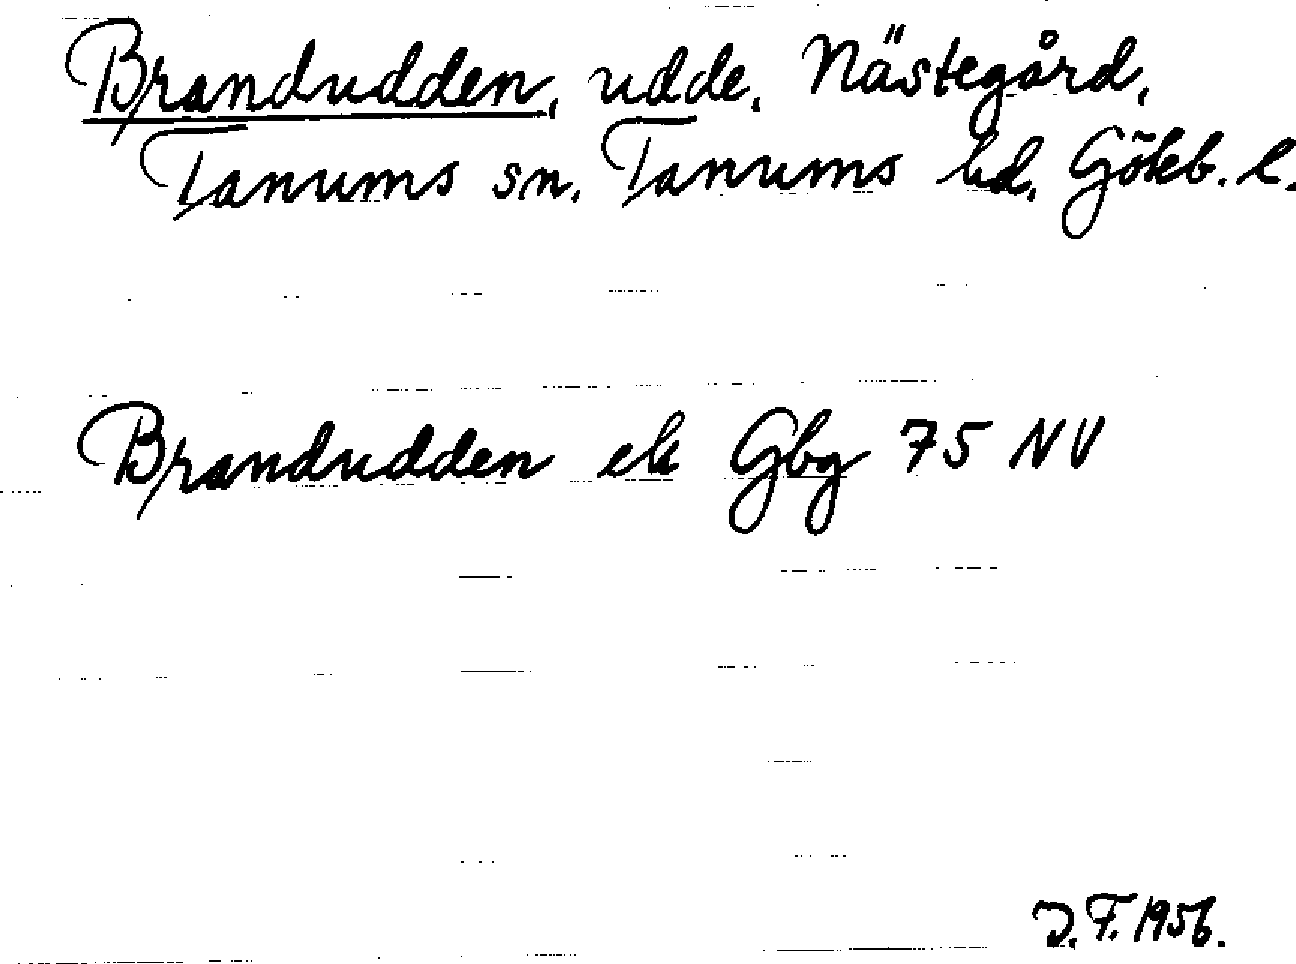 Brandudden, udde, Nästegård,
Tanums sn. Tanums hd. Göteb. l.
Brandudden ek Gbg 75 NV
D.F. 1956.